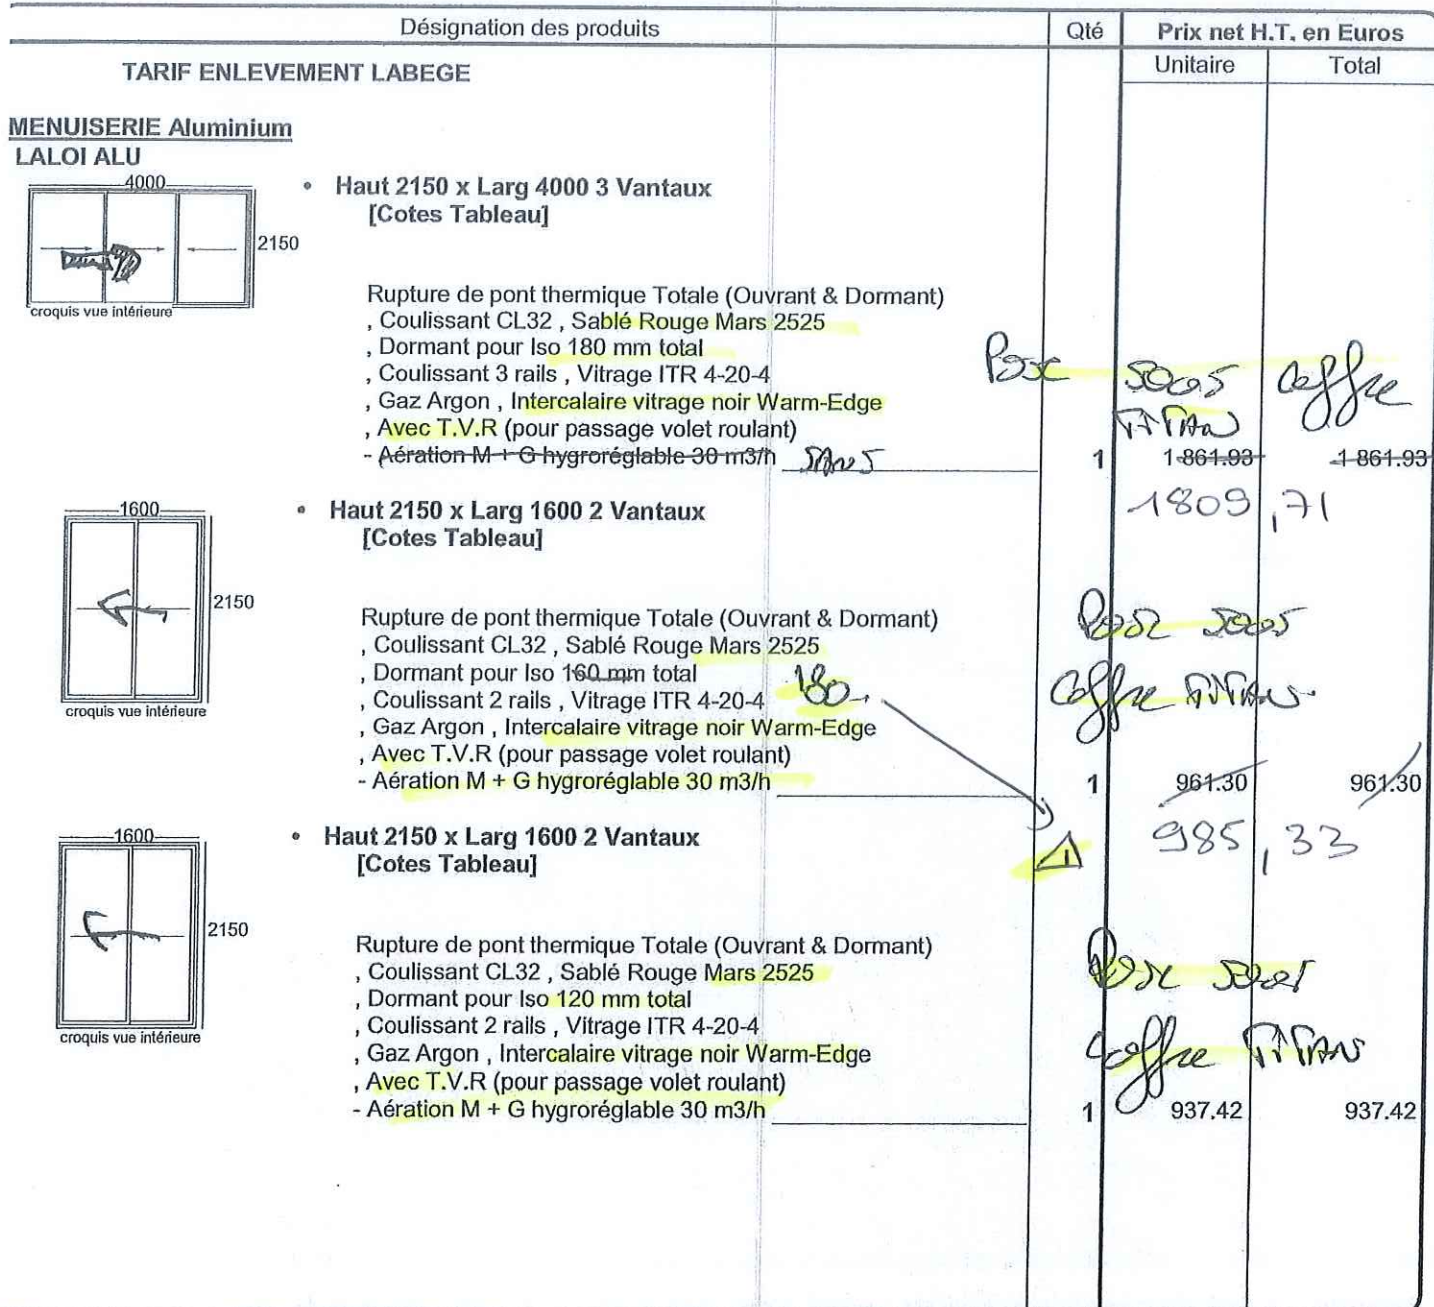 Désignation des produits Qté Prix net H.T. en Euros
Unitaire Total
TARIF ENLEVEMENT LABEGE
MENUISERIE Aluminium
LALOI ALU
4000
2150
croquis vue intérieure
• Haut 2150 x Larg 4000 3 Vantaux
[Cotes Tableau]
Rupture de pont thermique Totale (Ouvrant & Dormant)
, Coulissant CL32 , Sablé Rouge Mars 2525
, Dormant pour Iso 180 mm total
, Coulissant 3 rails , Vitrage ITR 4-20-4
, Gaz Argon , Intercalaire vitrage noir Warm-Edge
, Avec T.V.R (pour passage volet roulant)
- Aération M + G hygroréglable 30 m3/h SANS 1 1 861.93 1 861.93
Pose sous coffre
TITAN
1809,71
1600
2150
croquis vue intérieure
• Haut 2150 x Larg 1600 2 Vantaux
[Cotes Tableau]
Rupture de pont thermique Totale (Ouvrant & Dormant)
, Coulissant CL32 , Sablé Rouge Mars 2525
, Dormant pour Iso 160 mm total
180
, Coulissant 2 rails , Vitrage ITR 4-20-4
, Gaz Argon , Intercalaire vitrage noir Warm-Edge
, Avec T.V.R (pour passage volet roulant)
- Aération M + G hygroréglable 30 m3/h 1 961.30 961.30
Pose sous
coffre TITAN
985,33
1600
2150
croquis vue intérieure
• Haut 2150 x Larg 1600 2 Vantaux
[Cotes Tableau]
Rupture de pont thermique Totale (Ouvrant & Dormant)
, Coulissant CL32 , Sablé Rouge Mars 2525
, Dormant pour Iso 120 mm total
, Coulissant 2 rails , Vitrage ITR 4-20-4
, Gaz Argon , Intercalaire vitrage noir Warm-Edge
, Avec T.V.R (pour passage volet roulant)
- Aération M + G hygroréglable 30 m3/h 1 937.42 937.42
Pose sous
coffre TITAN